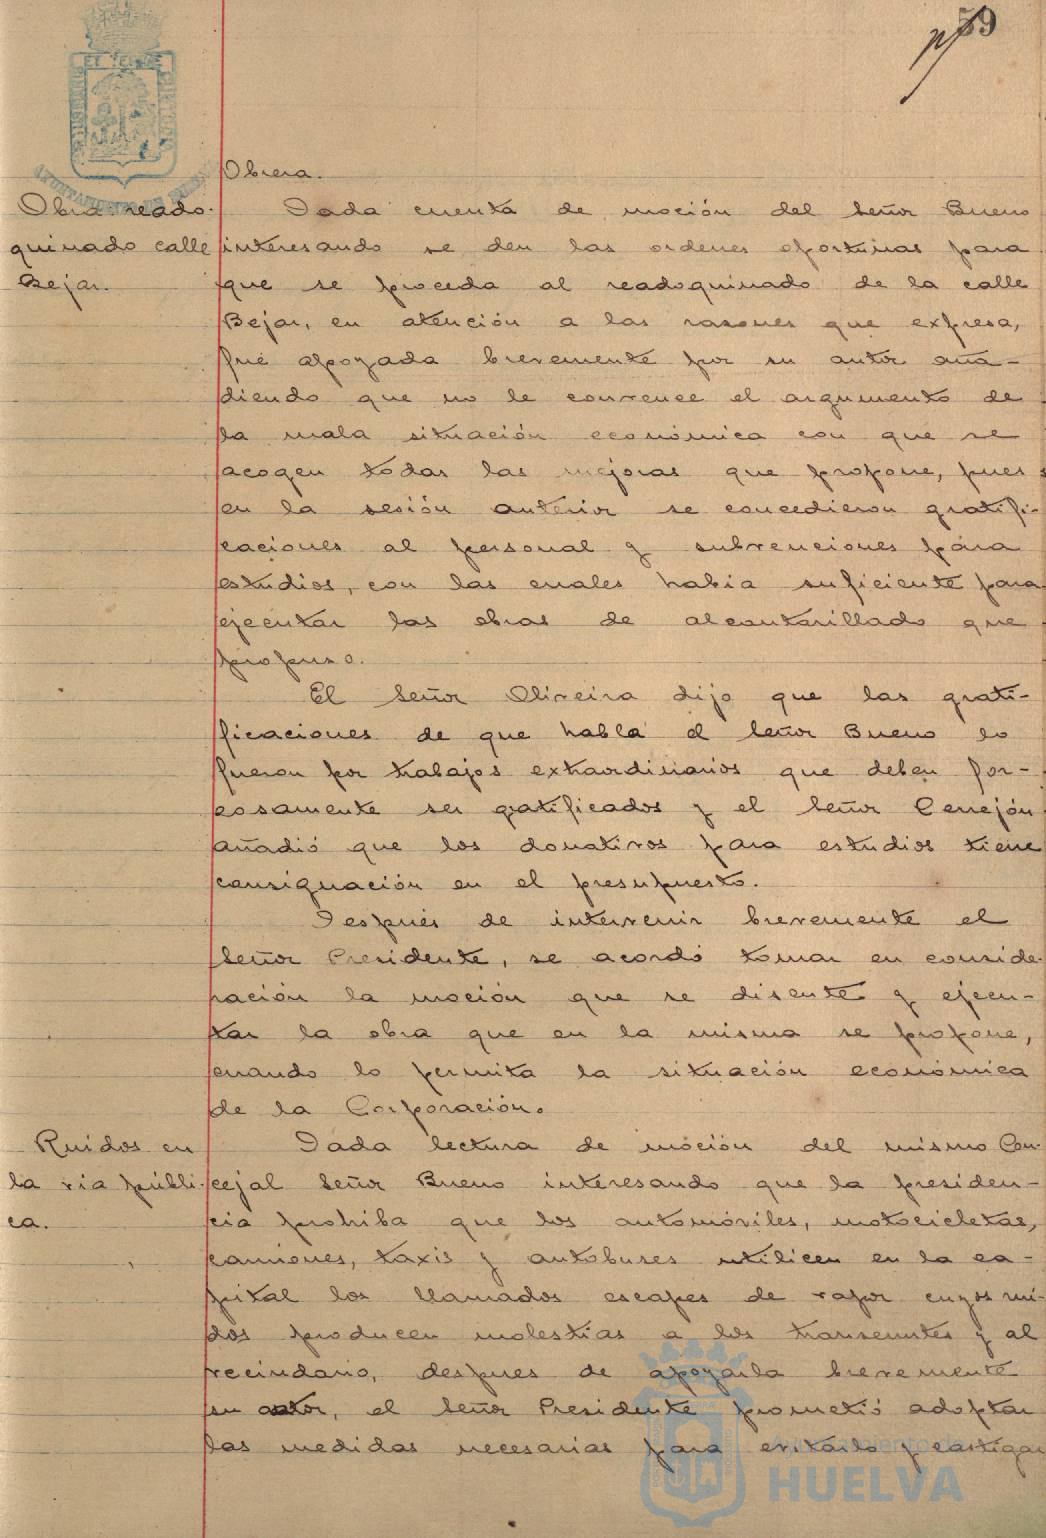 59
Obrera.
Obra reado-
quinado calle
Bejar.
Dada cuenta de moción del Señor Bueno
interesando se den las ordenes oportunas para
que se proceda al readoquinado de la calle
Bejar, en atención a las razones que expresa,
fué apoyada brevemente por su autor aña-
diendo que no le convence el argumento de
la mala situación económica con que se
acogen todas las mejoras que propone, pues
en la sesión anterior se concedieron gratifi-
caciones al personal y subvenciones para
estudios, con las cuales habia suficiente para
ejecutar las obras de alcantarillado que
propuso.
El Señor Oliveira dijo que las grati-
ficaciones de que habla el Señor Bueno lo
fueron por trabajos extraordinarios que deben for-
zosamente ser gratificados y el Señor Cerrejón
añadió que los donativos para estudios tiene
consignación en el presupuesto.
Después de intervenir brevemente el
Señor Presidente, se acordó tomar en conside-
ración la moción que se discute y ejecu-
tar la obra que en la misma se propone,
cuando lo permita la situación económica
de la Corporación.
Ruidos en
la via públi-
ca.
Dada lectura de moción del mismo Con-
cejal Señor Bueno interesando que la presiden-
cia prohiba que los automóviles, motocicletas,
camiones, taxis y autobuses utilicen en la ca-
pital los llamados escapes de vapor cuyos rui-
dos producen molestias a los transeuntes y al
vecindario, despues de apoyarla brevemente
su autor, el Señor Presidente prometió adoptar
las medidas necesarias para evitarlo y castigar
Ayuntamiento de
HUELVA